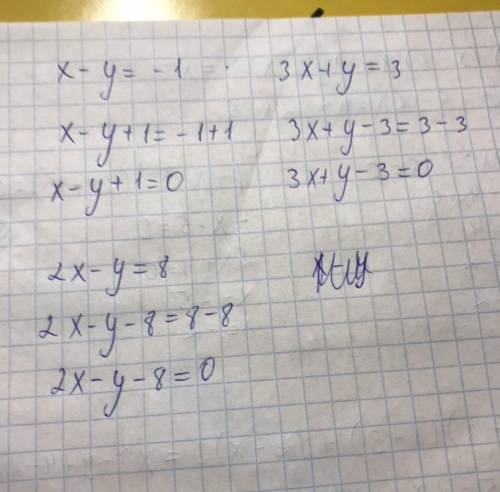 x - y = -1
x - y + 1 = -1 + 1
x - y + 1 = 0
3x + y = 3
3x + y - 3 = 3 - 3
3x + y - 3 = 0
2x - y = 8
2x - y - 8 = 8 - 8
2x - y - 8 = 0